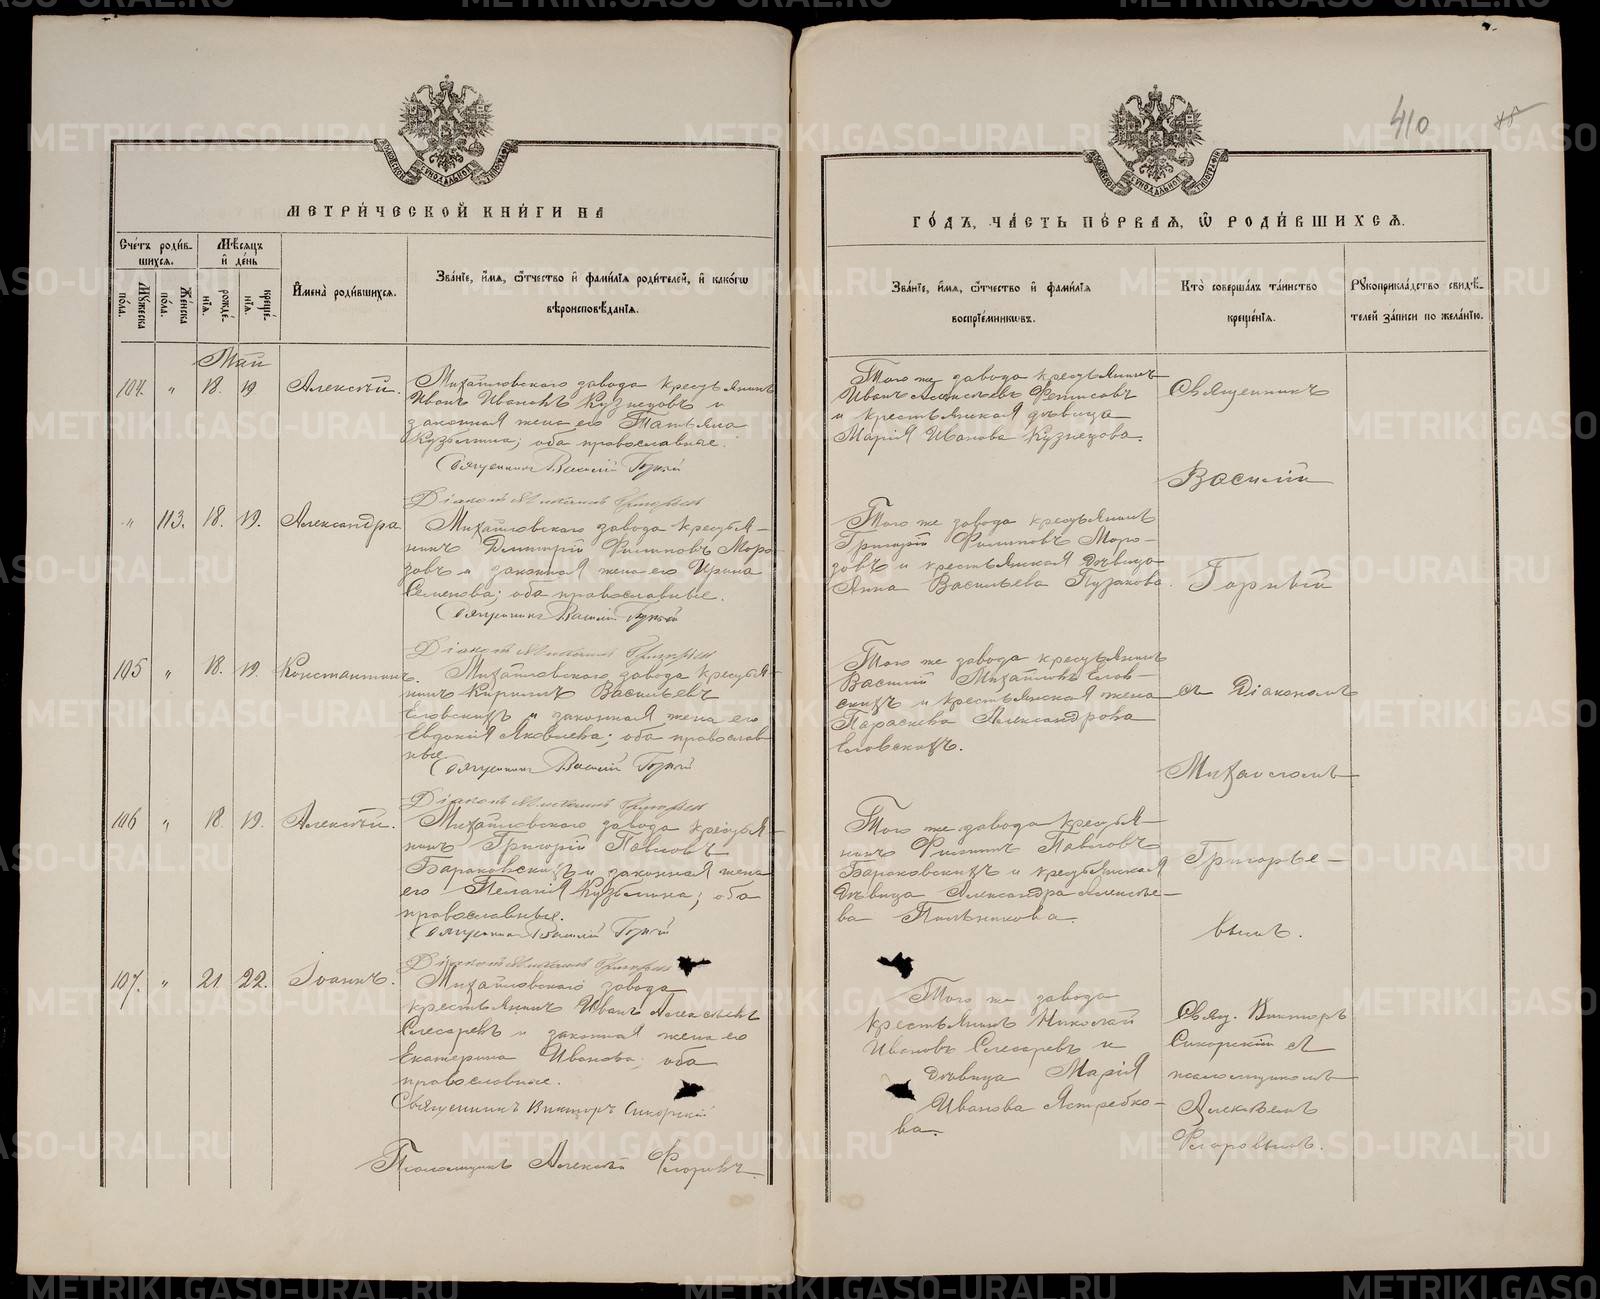 МЕТРИ́ЧЕСКОЙ КНИ́ГИ НА
Сче́тъ роди́в-
шихсѧ.
Мѣ́сѧцъ
и де́нь
Му́жеска
по́ла.
Же́нска
по́ла.
рожде́-
нїѧ.
креще́-
нїѧ.
Имена̀ роди́вшихсѧ.
Зва́нїе, и́мѧ, ѻ҆́тчество и фами́лїѧ роди́телей, и како́гѡ
вѣроисповѣ́данїѧ.
Май
104. " 18. 19 Алексѣй.
Михайловскаго завода крестьянинъ
Иванъ Ивановъ Кузнецовъ и
законная жена его Татьяна
Кузьмина; оба православные.
Священникъ Василій Горный
Діаконъ Михаилъ Григорьевъ
" 113. 18. 19. Александра
Михайловскаго завода крестья-
нинъ Димитрій Филиповъ Моро-
зовъ и законная жена его Ирина
Семенова; оба православные.
Священникъ Василій Горный
Діаконъ Михаилъ Григорьевъ
105 " 18. 19. Константинъ.
Михайловскаго завода крестья-
нинъ Кириллъ Васильевъ
Еловскихъ и законная жена его
Евдокія Яковлева; оба православ
ные
Священникъ Василій Горный
Діаконъ Михаилъ Григорьевъ
106 " 18. 19. Алексѣй.
Михайловскаго завода крестья-
нинъ Григорій Павловъ
Бараковскихъ и законная жена
его Пелагія Кузьмина; оба
православные.
Священникъ Василій Горный
Діаконъ Михаилъ Григорьевъ
107. " 21 22. Іоаннъ.
Михайловскаго завода
крестьянинъ Иванъ Алексѣевъ
Слесаревъ и законная жена его
Екатерина Иванова; оба
православные.
Священникъ Викторъ Сикорскій
Псаломщикъ Алексѣй Флоровъ
410
ГО́ДЪ, ЧА́СТЬ ПЕ́РВАѦ, Ѡ РОДИ́ВШИХСѦ.
Зва́нїе, и́мѧ, ѻ҆́тчество и фами́лїѧ
воспрїе́мникѡвъ.
Кто̀ соверша́лъ та́инство
креще́нїѧ.
Рꙋкоприкла́дство свидѣ́-
телей за́писи по жела́нїю.
Того же завода крестьянинъ
Иванъ Алексѣевъ Фетисовъ
и крестьянская дѣвица
Марія Иванова Кузнецова.
Того же завода крестьянинъ
Григорій Филиповъ Моро-
зовъ и крестьянская дѣвица
Анна Васильева Пузакова.
Того же завода крестьянинъ
Василій Михайловъ Елов-
скихъ и крестьянская жена
Параскева Александрова
Еловскихъ.
Того же завода крестья-
нинъ Филиппъ Павловъ
Бараковскихъ и крестьянская
дѣвица Александра Алексѣе-
ва Пильникова.
Того же завода
крестьянинъ Николай
Ивановъ Слесаревъ и
дѣвица Марія
Иванова Ястребко-
ва.
Священникъ
Василій
Горный
съ Діакономъ
Михаиломъ
Григорье-
вымъ.
Свящ. Викторъ
Сикорскій съ
псаломщикомъ
Алексѣемъ
Флоровымъ.